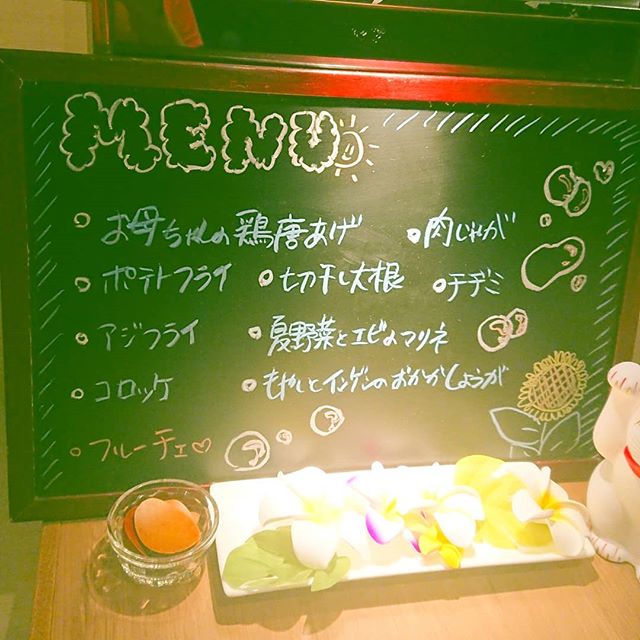 MENU
○ お母ちゃんの鶏唐あげ ○肉じゃが
○ ポテトフライ ○切干し大根 ○チヂミ
○ アジフライ ○夏野菜とエビのマリネ
○ コロッケ ○もやしとインゲンのおかかしょうが
○ フルーチェ♡